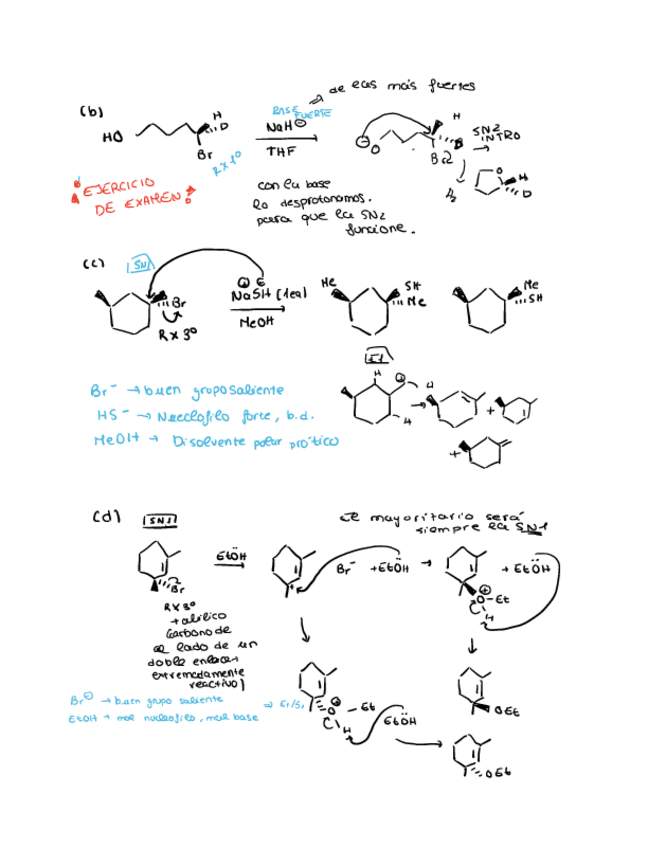 de las más fuertes
(b)
BASE FUERTE
H
D
HO
Br
NaH ⊖
THF
Rx 1º
H
⊖ O
D
Br
SN2
INTRO
O
H
D
¡EJERCICIO
DE EXAMEN!
con la base
lo desprotonamos.
para que la SN2
funcione.
(c)
⊕ ⊖
NaSH (1eq)
MeOH
Br
Rx 3º
Me
SH
Me
Me
SH
E1
H
⊕
H
H
+
+
Br⁻ → buen grupo saliente
HS⁻ → Nucleofilo forte, b.d.
MeOH → Disolvente polar prótico
(d)
SN1
El mayoritario será
siempre la SN1
EtÖH
Br
Br⁻ + EtÖH → + EtÖH
⊕
O - Et
H
Rx 3º
+ alílico
(carbono de
al lado de un
doble enlace →
extremadamente
reactivo)
Br⊖ → buen grupo saliente
EtOH → mal nucleofilo, mal base
⇒ E1/S
⊕
O - Et
H
EtÖH
OEt
OEt